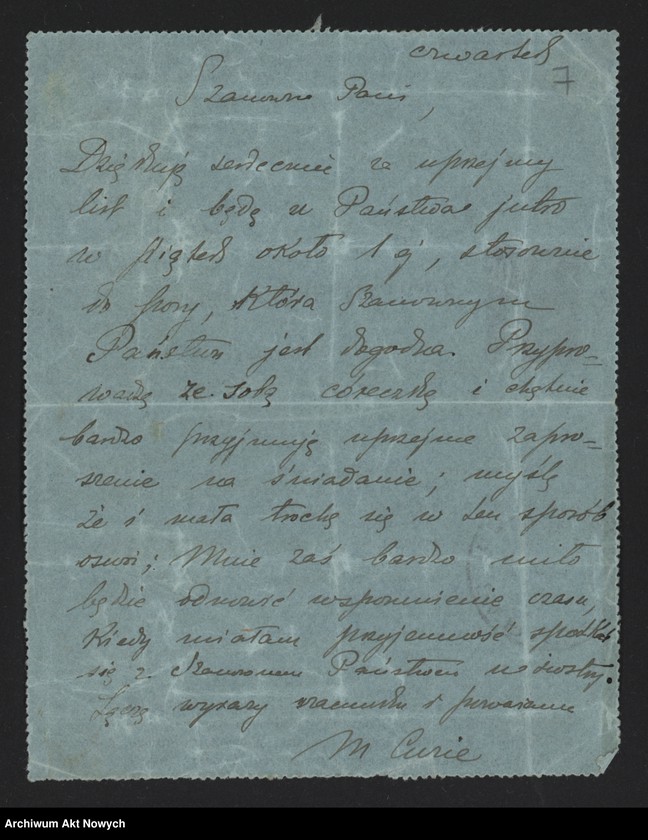 czwartek
7
Szanowna Pani,
Dziękuję serdecznie za uprzejmy
list i będę u Państwa jutro
w piątek około 1 ej, stosownie
do pory, która Szanownym
Państwu jest dogodna. Przypro-
wadzę ze sobą córeczkę i chętnie
bardzo przyjmuję uprzejme zapro-
szenie na śniadanie; myślę
że i mała trochę się w ten sposób
oswoi; Mnie zaś bardzo miło
będzie odnowić wspomnienie czasu,
kiedy miałam przyjemność spotkać
się z Szanownem Państwem u siostry.
Łączę wyrazy szacunku i poważania
M Curie
Archiwum Akt Nowych